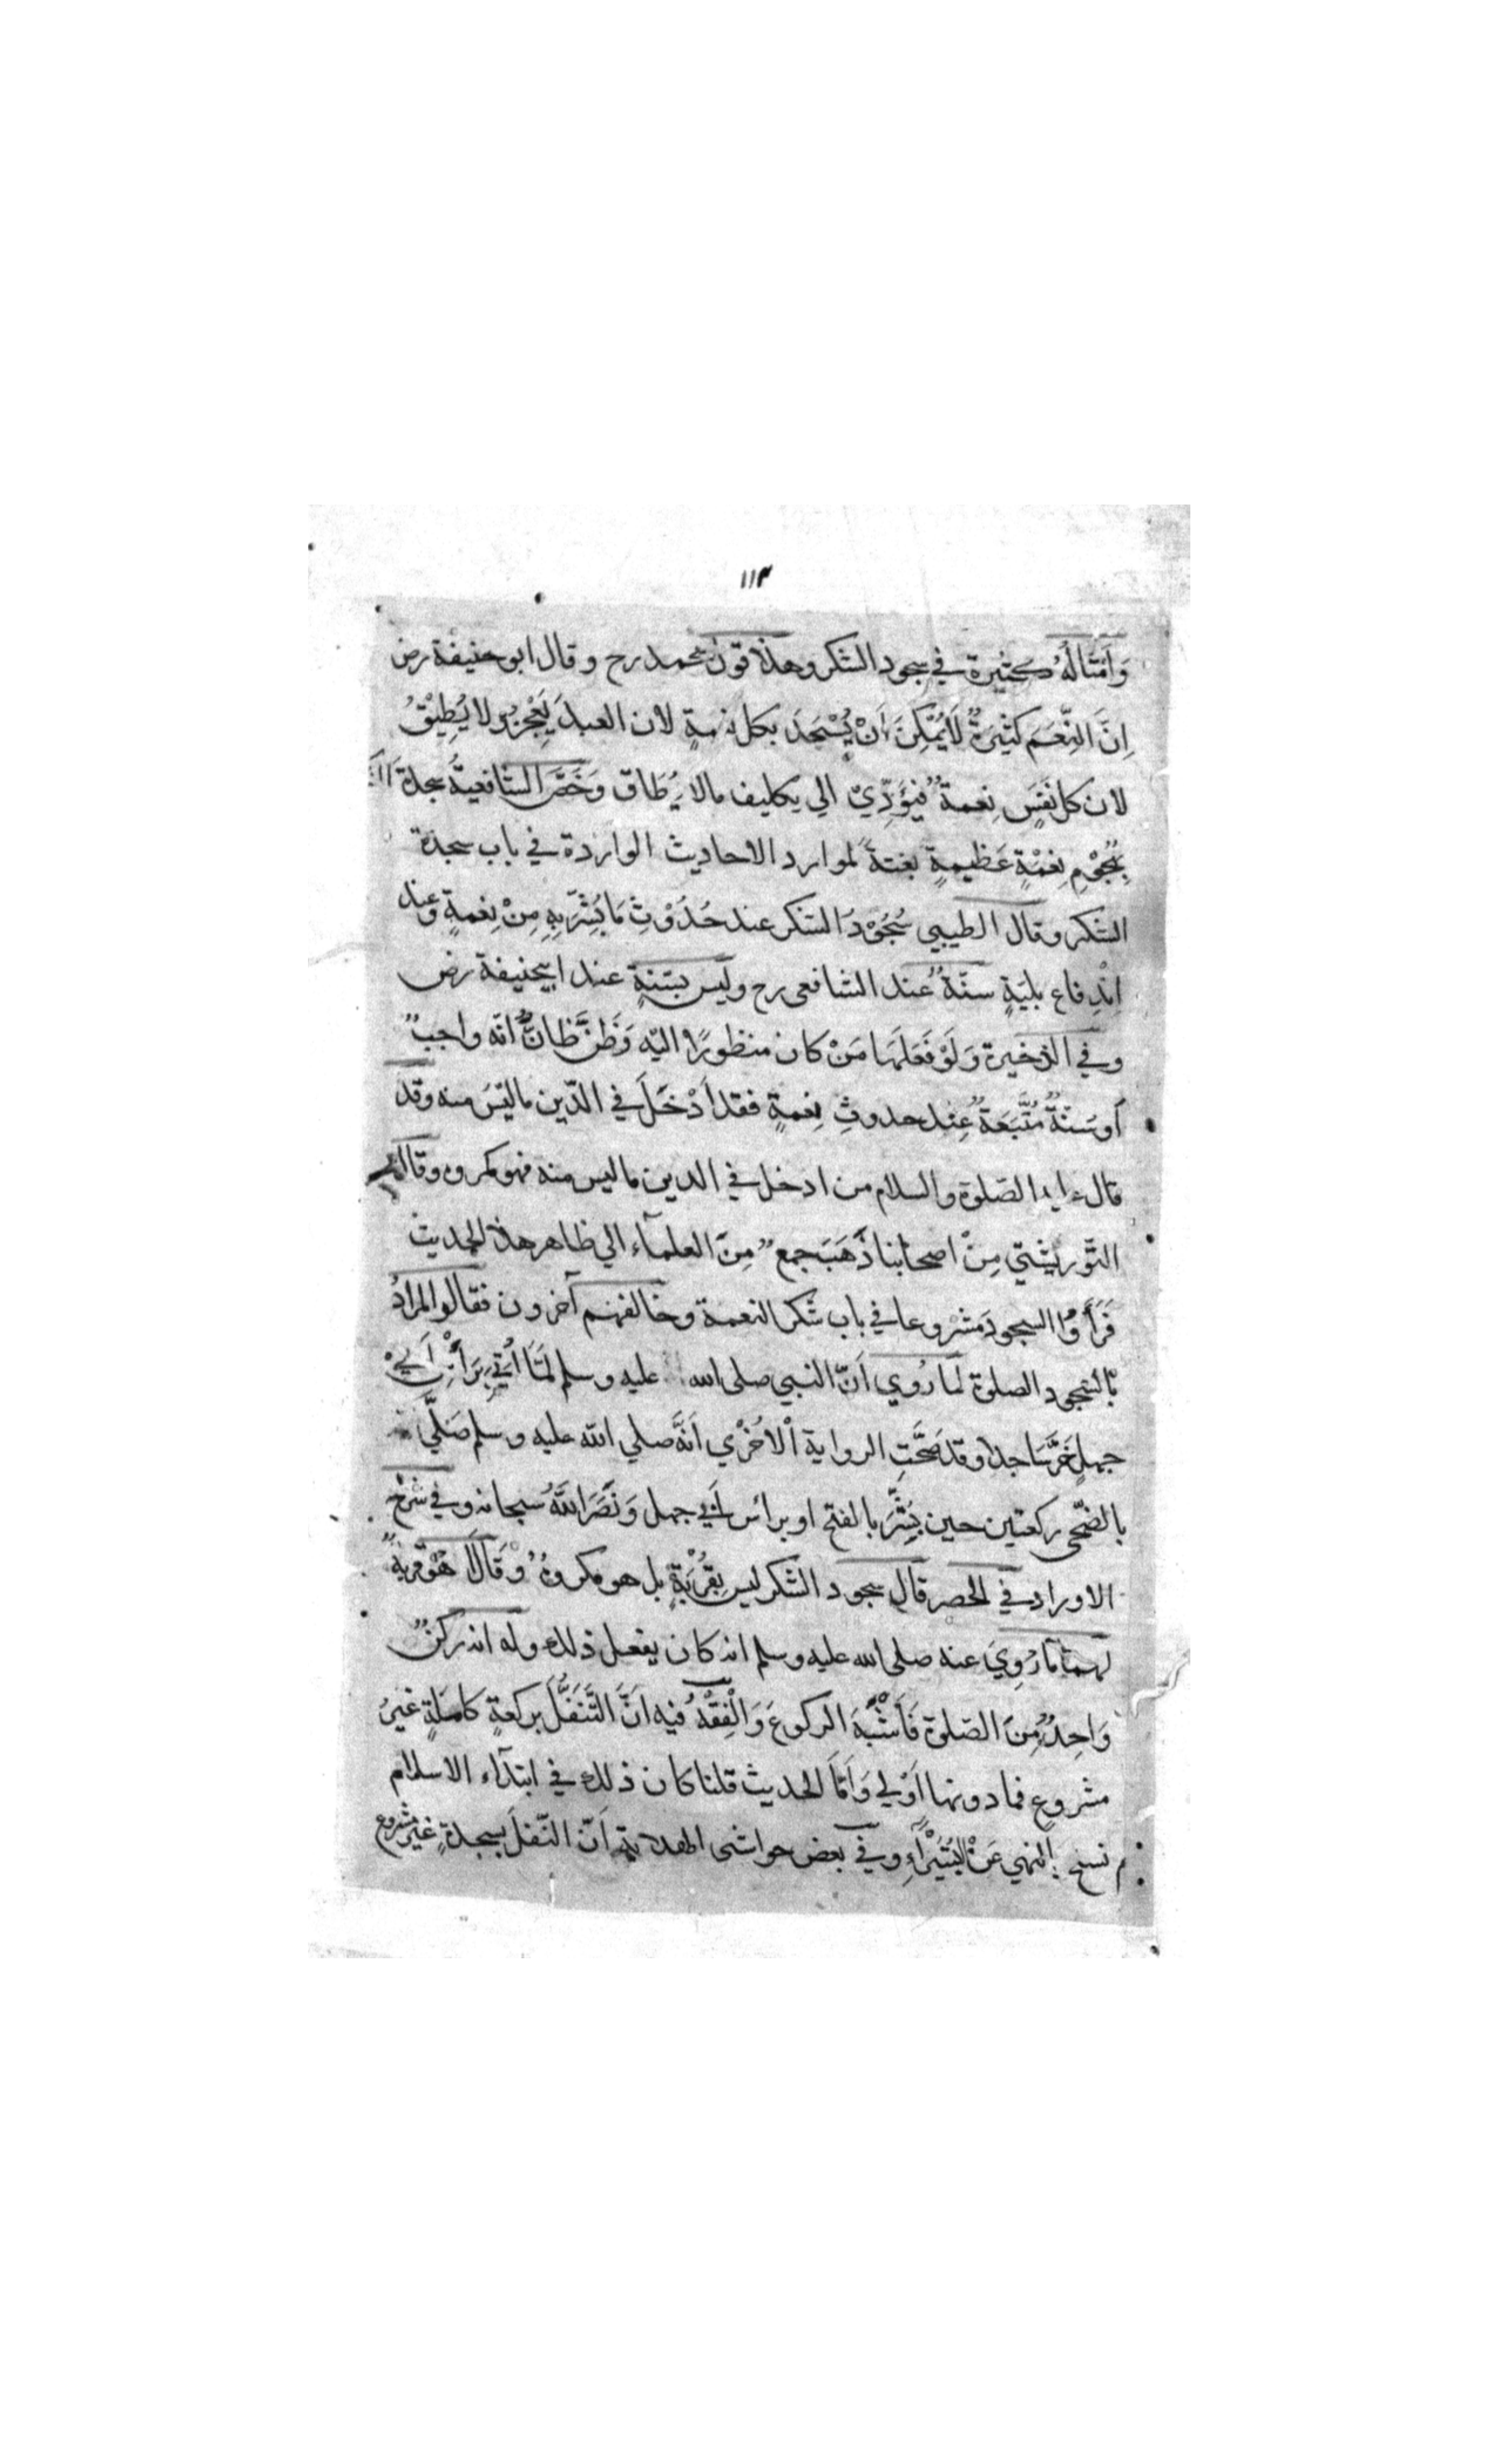 ١١٣
وَاَمْثَالُهُ كثيرة في سجود الشكر وهذا قول محمد رح وقال ابو حنيفة رض
اِنَّ النِّعَمَ كَثِيرَةٌ لَا يُمْكِنُ اَنْ يُسْجَدَ بكل نعمةٍ لان العبدَ يَعْجِزُ ولا يُطِيْقُ
لان كل نَفَسٍ نِعمةٌ فيُؤَدِّيْ الي تكليف مالا يُطَاق وَخَصَّ الشافعيةُ سجدة
بِهُجُوْمِ نِعْمَةٍ عَظِيمةٍ بغتةً لموارد الاحاديث الواردة في باب سجدة
الشكر وقال الطيبي سُجُوْدُ الشكر عند حُدُوْثِ مَا يُسَرُّ بِهِ مِنْ نِعمةٍ وعند
اِنْدِفاع بليّةٍ سنّةٌ عند الشافعي رح وليس بسّنةٍ عند ابيحنيفة رض
وفي الذخيرة وَلَوْ فَعَلَهَا مَنْ كان منظورًا اليّه وَظَنَّ ظَانٌّ انّه واجبٌ
أَو سُنَّةٌ مُتَّبَعَةٌ عِنْد حدوثِ نِعمةٍ فقد اَدْخَلَ في الدّين ما ليْسَ منه وقد
قال عليه الصّلوة والسلام من ادخل في الدين ما ليس منه فهو مكروه وقال
التَّوربشتي مِنْ اصحابنا ذَهَبَ جمعٌ مِنَ العلمآء الي ظاهر هذا الحديث
فَرَأَوُا السجودَ مشروعا في باب شكر النعمة وخالفهم آخرون فقالوا المرادُ
بالسّجود الصلوة لما رُوي اَنّ النبي صلى الله عليه وسلم لَمَّا اُتِيَ بِرَأْسِ اَبِيْ
جهلٍ خَرَّ سَاجدا وقد صَحَّتِ الرواية الْاُخْرٰي اَنَّهُ صلي الله عليه وسلم صَلَّي
بالضّحى ركعتين حين بُشِّرَ بالفتح او برائس اَبِي جهل وَنَصَرَ اللّٰهُ سبحانه وفي شرح
الاوراد في الحصر قال سجود الشكر ليس بِقُرْبَةٍ بل هو مكروهٌ وَقَالَا هُوَ قربةٌ
لهما ما رُوِيَ عنه صلى الله عليه وسلم انه كان يفعل ذلك وله انه ركنٌ
وَاحِدٌ مِنَ الصّلوة فَاَشْبَهَ الركوعَ وَالْفِقْهُ فيه اَنَّ التَّنَفُّلَ بركعةٍ كاملةٍ غيرُ
مشروعٍ فما دونها اَوْلي وَاَمَّا الحديث قلنا كان ذلك في ابتدآء الاسلام
ثم نسخ بالنهي عَنْ الْبُتَيْرَآءِ وفي بعض حواشي الهداية اَنّ النّفلَ بسجدةٍ غير مشروع